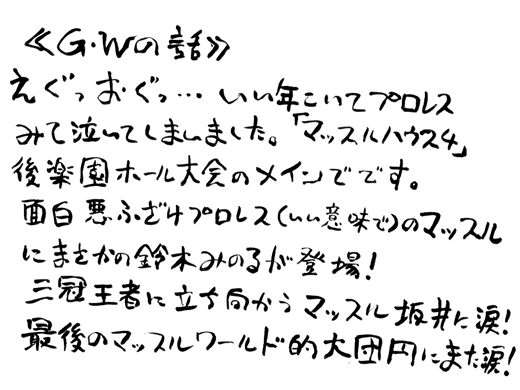 ≪G・Wの話≫
えぐっおぐっ…いい年こいてプロレス
みて泣いてしまいました。「マッスルハウス4」
後楽園ホール大会のメインでです。
面白悪ふざけプロレス(いい意味で)のマッスル
にまさかの鈴木みのるが登場!
三冠王者に立ち向かうマッスル坂井に涙!
最後のマッスルワールド的大団円にまた涙!